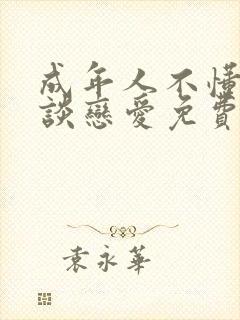 成年人不懂
談戀愛免費
袁永華